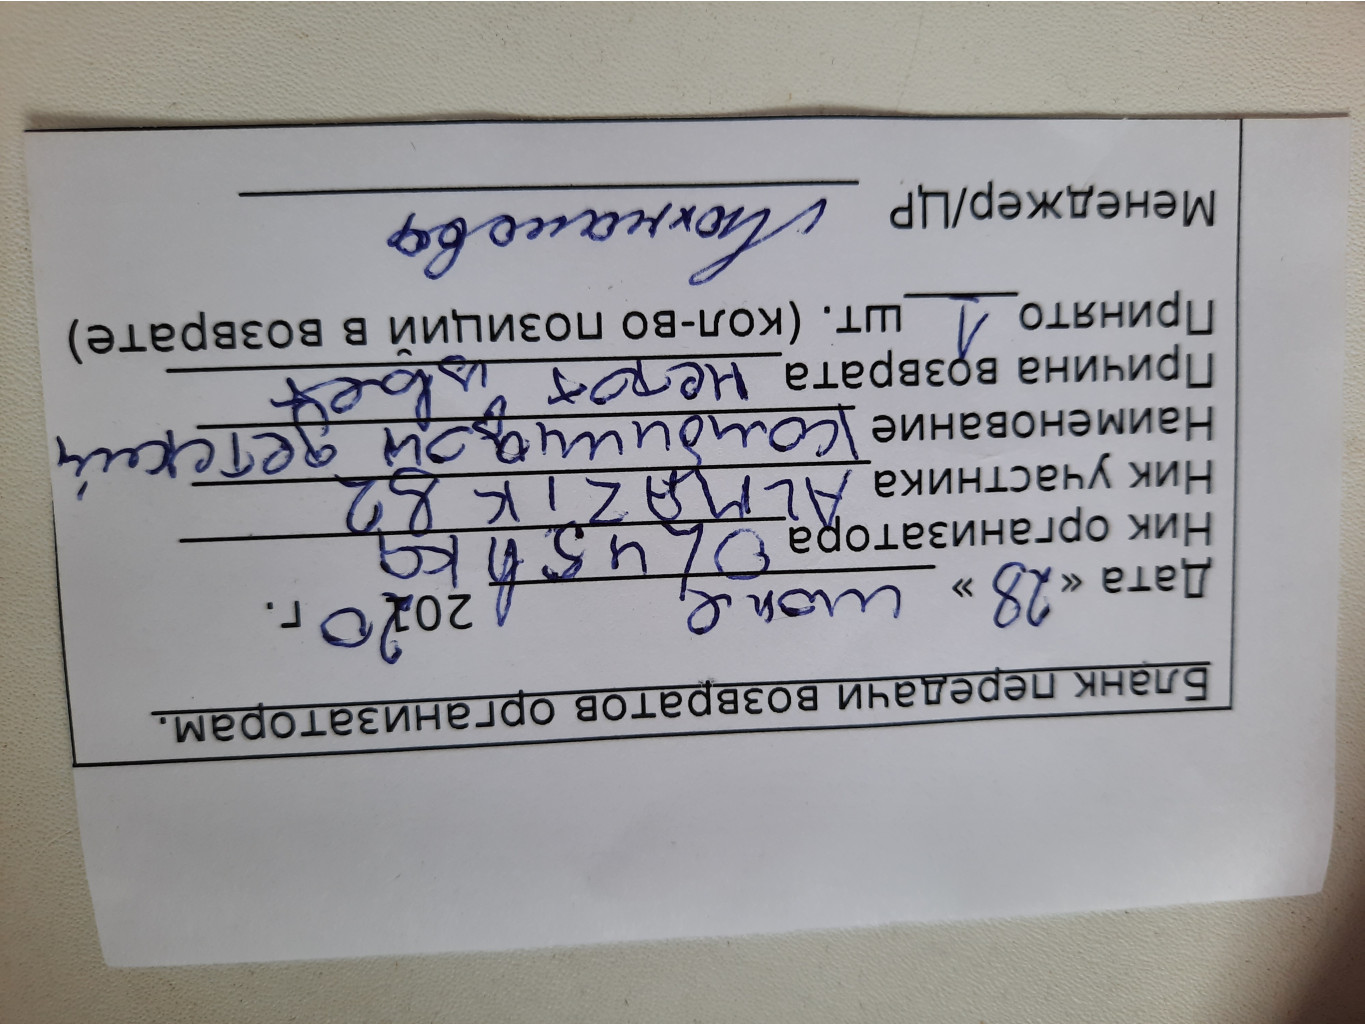 Бланк передачи возвратов организаторам.
Дата « 28 » июня 2020 г.
Ник организатора OL45Hка
Ник участника ALMAZIK 82
Наименование Комбинизон детский
Причина возврата не тот цвет
Принято 1 шт. (кол-во позиций в возврате)
Менеджер/ЦР